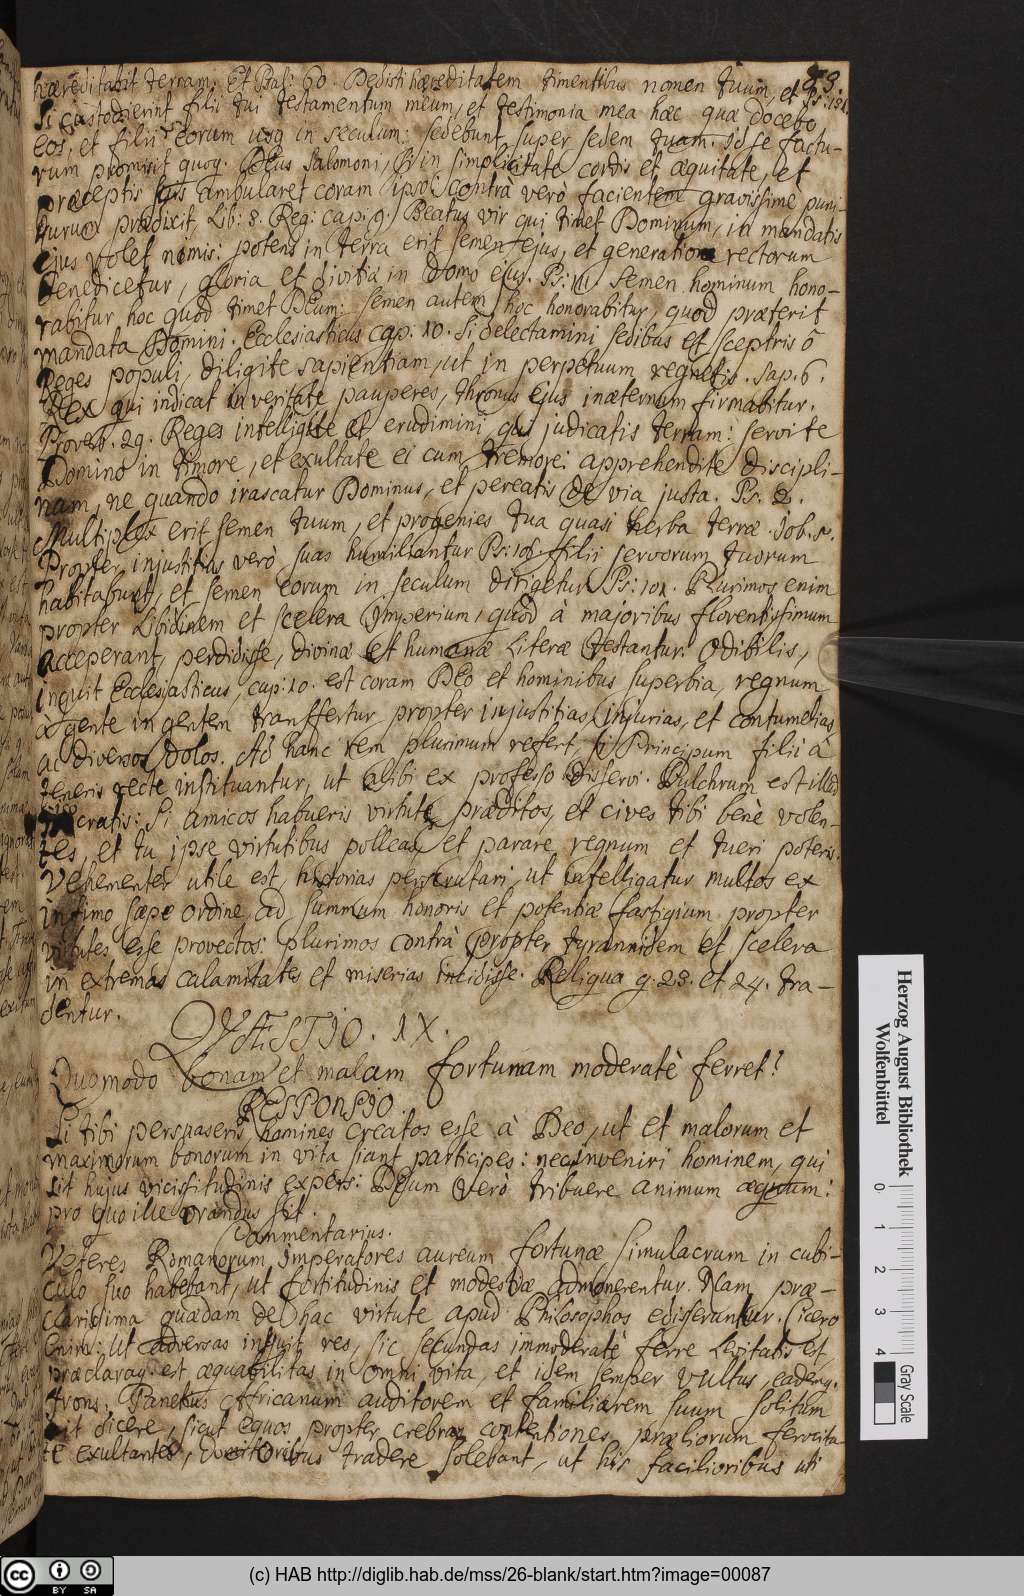 83.
hæreditabit terram. Et Psal: 60. Dedisti hæreditatem timentibus nomen tuum, et Ps: 131.
Si custodierint filii tui testamentum meum, et testimonia mea hæc quæ docebo
eos, et filii eorum usq in seculum: sedebunt super sedem tuam. Id se factu-
rum promisit quoq. Deus Salomoni, si in simplicitate cordis et æquitate, et
præceptis suis ambularet coram ipso: contrà verò facientem gravissime puni-
turum prædixit, Lib: 3. Reg: cap: 9. Beatus vir qui timet Dominum, in mandatis
ejus volet nimis: potens in terra erit semen ejus, et generatione rectorum
benedicetur, gloria et divitiæ in domo ejus. Ps: 111. Semen hominum hono-
rabitur hoc quod timet DEum: semen autem hoc honorabitur, quod præterit
mandata Domini. Ecclesiasticus cap. 10. Si delectamini sedibus et sceptris ô
Reges populi, diligite sapientiam, ut in perpetuum regnetis. Sap. 6.
Rex qui iudicat in veritate pauperes, thronus ejus in æternum firmabitur.
Proverb. 29. Reges intelligite et erudimini, qui judicatis terram: servite
Domino in timore, et exultate ei cum tremore: apprehendite discipli-
nam, ne quando irascatur Dominus, et pereatis de via justa. Ps. 2.
Multiplex erit semen tuum, et progenies tua quasi herba terræ. Job. 5.
Propter injustitias verò suas humiliantur Ps: 106. filii servorum tuorum
habitabunt, et semen eorum in seculum dirigetur Ps: 101. Plurimos enim
propter libidinem et scelera Imperium, quod à majoribus florentissimum
acceperant, perdidisse, divinæ et humanæ Literæ testantur. Odibilis,
inquit Ecclesiasticus, cap: 10. est coram DEo et hominibus superbia, regnum
à gente in gentem transfertur propter injustitias, injurias, et contumelias,
ac diversos dolos. Ad hanc rem plurimum refert, si Principum filii à
teneris recte instituantur, ut alibi ex professo disserui. Pulchrum est illud
Isocratis: Si amicos habueris virtute præditos, et cives tibi benè volen-
tes, et tu ipse virtutibus polleas, et parare regnum et tueri poteris.
Vehementer utile est, historias perscrutari, ut intelligatur multos ex
infimo sæpe ordine ad summum honoris et potentiæ fastigium propter
virtutes esse provectos: plurimos contrà propter tyrannidem et scelera
in extremas calamitates et miserias incidisse. Reliqua q. 23. et 24. tra-
dentur.
QVÆSTIO. IX.
Quomodo bonam et malam fortunam moderatè ferret?
RESPONSIO.
Si tibi persuaseris, homines creatos esse à Deo, ut et malorum et
maximorum bonorum in vita fiant participes: nec inveniri hominem, qui
sit hujus vicissitudinis expers: Deum verò tribuere animum æquum:
pro quo ille orandus sit.
Commentarius.
Veteres Romanorum Imperatores aureum fortunæ simulacrum in cubi-
culo suo habebant, ut fortitudinis et modestiæ admonerentur. Nam præ-
clarissima quædam de hac virtute apud Philosophos edisseruntur. Cicero
enim: ut adversas inquit, res, sic secundas immoderatè ferre levitatis est,
præclaraq. est æquabilitas in omni vita, et idem semper vultus, eademq.
frons. Panetius Africanum auditorem et familiarem suum solitum
ait dicere, sicut equos propter crebras contentiones præliorum ferocita-
te exultantes, domitoribus tradere solebant, ut his facilioribus uti
Herzog August Bibliothek
Wolfenbüttel
0 1 2 3 4
Gray Scale
CC BY SA
(c) HAB http://diglib.hab.de/mss/26-blank/start.htm?image=00087